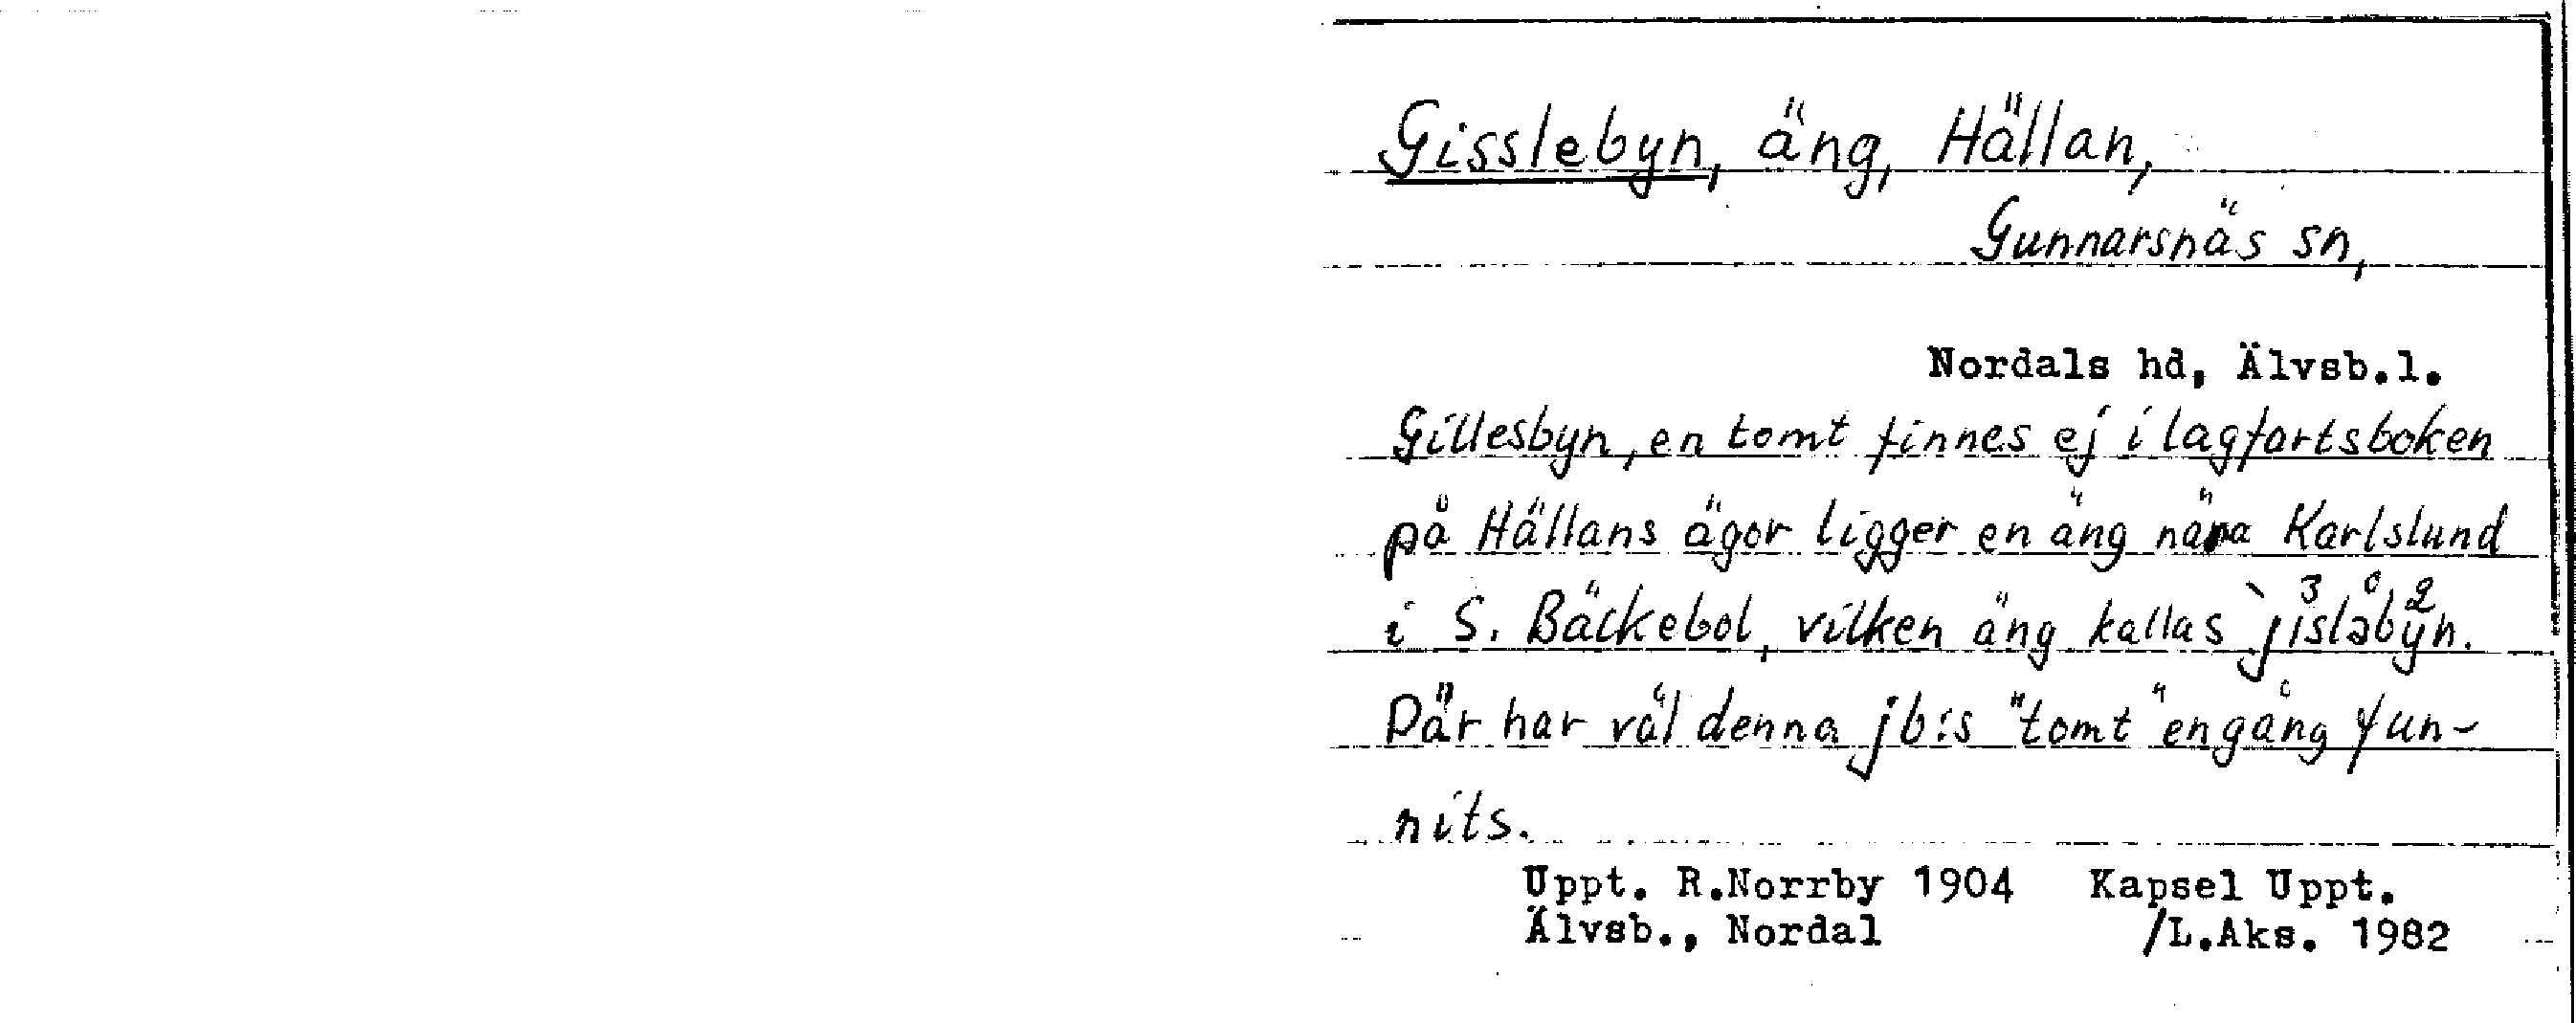 Gisslebyn, äng, Hällan,
Gunnarsnäs sn,
Nordals hd, Älvsb.l.
Gillesbyn, en tomt finnes ej i lagfartsboken
på Hällans ägor ligger en äng nära Karlslund
i S. Bäckebol, vilken äng kallas
Där har väl denna jb:s "tomt" engång fun-
nits.
Uppt. R.Norrby 1904 Kapsel Uppt.
Älvsb., Nordal /L.Aks. 1982